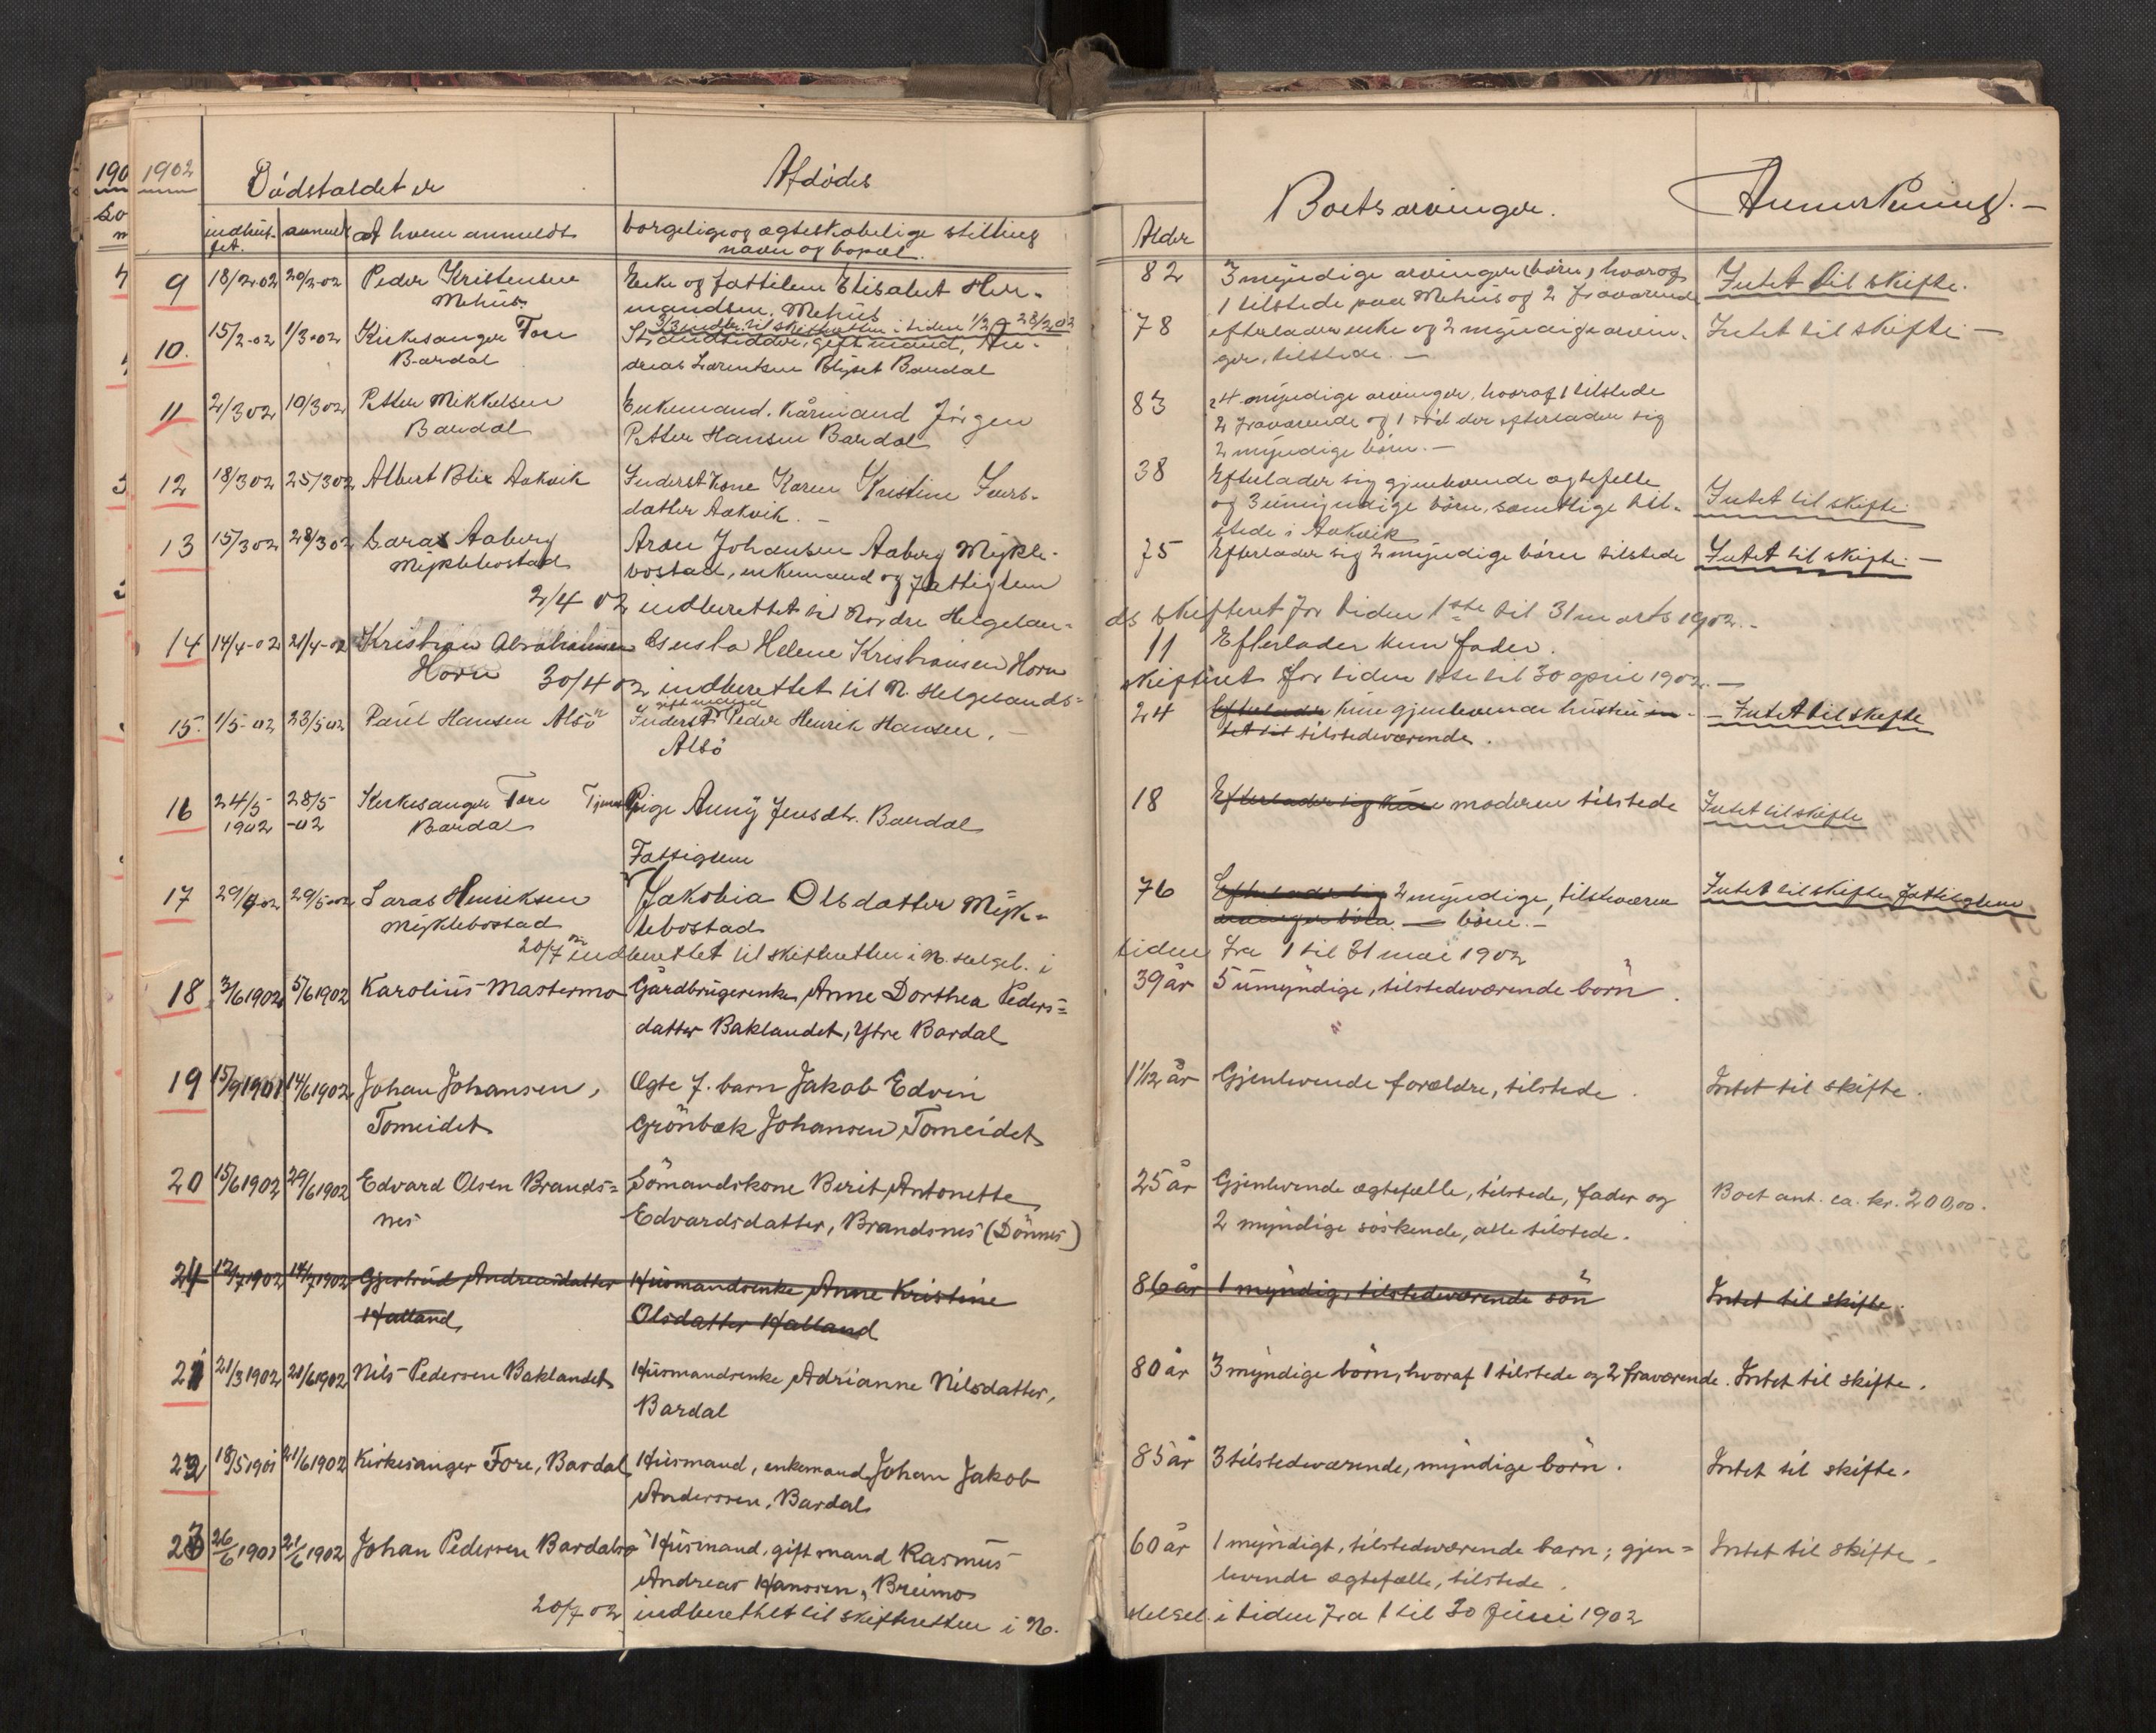 1902
Dödsfaldet er
Afdödes
Boets arvinger.
Anmerkning.-
indtruf-
fet.
anmeldt
Af hvem anmeldt
borgelige og ægteskabelige stilling
navn og bopæl.
Alder
9 18/2 02 20/2-02 Peder Kristensen Enke og fattilem Elisabet Her- 82 3 myndige arvinger (börn) hvoraf Intet til skifte.
Mehus mandsen. Mehus 1 tilstede paa Mehus og 2 fraværende
3/3 indb. til skifteretten i tiden 1/2 - 28/2 02
10. 15/2-02 1/3-02 Kirkesanger Fore Strandsidder, gift mand, An- 78 efterlader enke og 2 myndige arvin- Intet til skifte -
Bardal dreas Larentsen Blyset Bardal ger, tilstede. -
11 2/3 02 10/3 02 Petter Mikkelsen Enkemand. Kårmand Jörgen 83 4 myndige arvinger, hvoraf 1 tilstede
Bardal Petter Hansen Bardal 2 fraværende og 1 död der efterlader sig
2 myndige börn. -
12 18/3 02 25/3 02 Albert Blix Aakvik Inderst Kone Karen Kristine Ivers- 38 Efterlader sig gjenlevende ægtefelle
datter Aakvik. - og 3 umyndige börn, samtlige til- Intet til skifte
stede i Aakvik
13 15/3 02 28/3 02 Saras Aaberg Aron Johansen Aaberg Mykle- 75 Efterlader sig 2 myndige börn tilstede Intet til skifte -
Myklebostad bostad, enkemand og fattiglem
2/4 02 indberettet til Nordre Helgelan- ds skifteret for tiden 1ste til 31 marts 1902. -
14 14/4-02 21/4-02 Kristian Abrahamsen Gusta Helene Kristiansen Horn 11 Efterlader kun fader.
Horn 30/4 02 indberettet til N. Helgelands- skifteret for tiden 1ste til 30 april 1902. -
gift mand
15. 1/5-02 23/5 02 Paul Hansen Alsö Inderst Peder Henrik Hansen. - 24 Efterlader kun gjenlevende hustru in- - Intet til skifte
Alsö tet til tilstedeværende.
16 24/5 1902 28/5 -02 Kirkesanger Fore Tjenes Pige Anny Jensdtr. Bardal 18 Efterlader sig kun moderen tilstede Intet til skifte
Bardal
Fattiglem
17 29/4 02 29/5-02 Saras Henriksen Jakobia Olsdatter Myk- 76 Efterlader sig 2 myndige, tilstværen Intet til skifte, fattiglem
Myklebostad lebostad arvinger börn. - börn. -
20/7 indberettet til skifteretten i N. Helgel. i tiden fra 1 til 31 mai 1902
18 3/6 1902 5/6 1902 Karolius Mastermo Gårdbrugerenke Anne Dorthea Peders= 39 år 5 umyndige, tilstedeværende börn.
datter Baklandet, Ytre Bardal
19 15/9 1901 14/6 1902 Johan Johansen, Ægte f. barn Jakob Edvin 1 1/12 år Gjenlevende forældre, tilstede. Intet til skifte.
Tomeidet Grönbæk Johansen, Tomeidet
20 15/6 1902 29/6 1902 Edvard Olsen Brands= Sömandskone Berit Antonette 25 år Gjenlevende ægtefælle, tilstede, fader og Boet ant. ca. kr. 200,00.
nes Edvardsdatter, Brandsnes (Dönnes) 2 myndige söskende, alle tilstede.
21 12/7 1902 14/7 1902 Gjertrud Andreasdatter Husmandsenke Anne Kristine 86 år 1 myndig, tilstedeværende sön Intet til skifte.
Halland Olsdatter Halland
21 21/3 1902 21/6 1902 Nils Pedersen Baklandet Husmandsenke Adrianne Nilsdatter, 80 år 3 myndige börn, hvoraf 1 tilstede og 2 fraværende. Intet til skifte.
Bardal
22 18/5 1901 21/6 1902 Kirkesanger Fore, Bardal Husmand, enkemand Johan Jakob 85 år 3 tilstedeværende, myndige börn. Intet til skifte.
Anderssen, Bardal
23 26/6 1901 21/6 1902 Johan Pedersen Bardalsö Husmand, gift mand Rasmus 60 år 1 myndigt, tilstedeværende barn; gjen= Intet til skifte.
Andreas Hanssen, Breimo levende ægtefælle, tilstede.
20/7 02 indberettet til skifteretten i N. Helgel. i tiden fra 1 til 30 Juni 1902